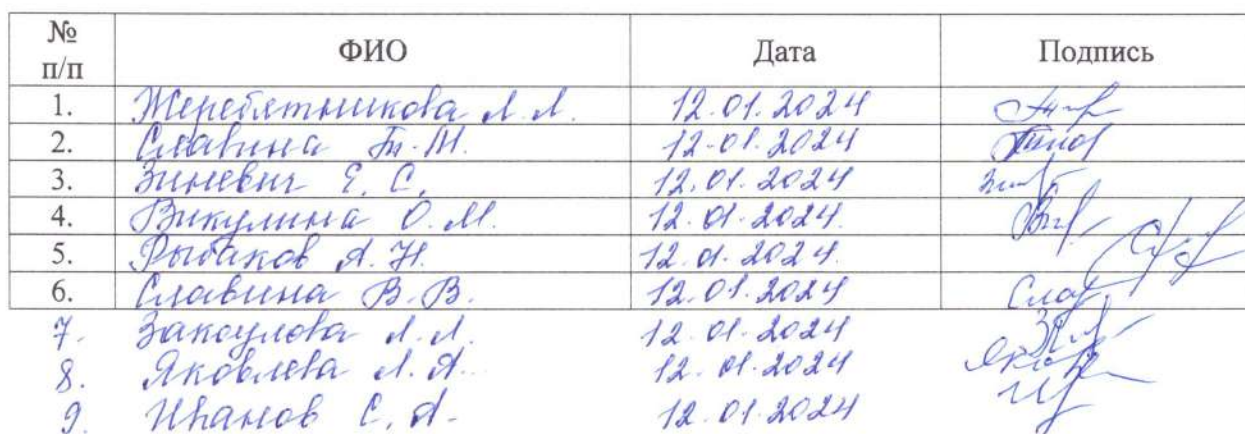 № п/п ФИО Дата Подпись
1. Жеребятникова Л. Л. 12.01.2024
2. Славина Т. М. 12.01.2024
3. Зиневич Е. С. 12.01.2024
4. Викулина О. М. 12.01.2024
5. Рыбаков А. Н. 12.01.2024.
6. Славина В. В. 12.01.2024
7. Л. Л. 12.01.2024
8. Яковлева Л. А. 12.01.2024
9. Иванов С. А. 12.01.2024